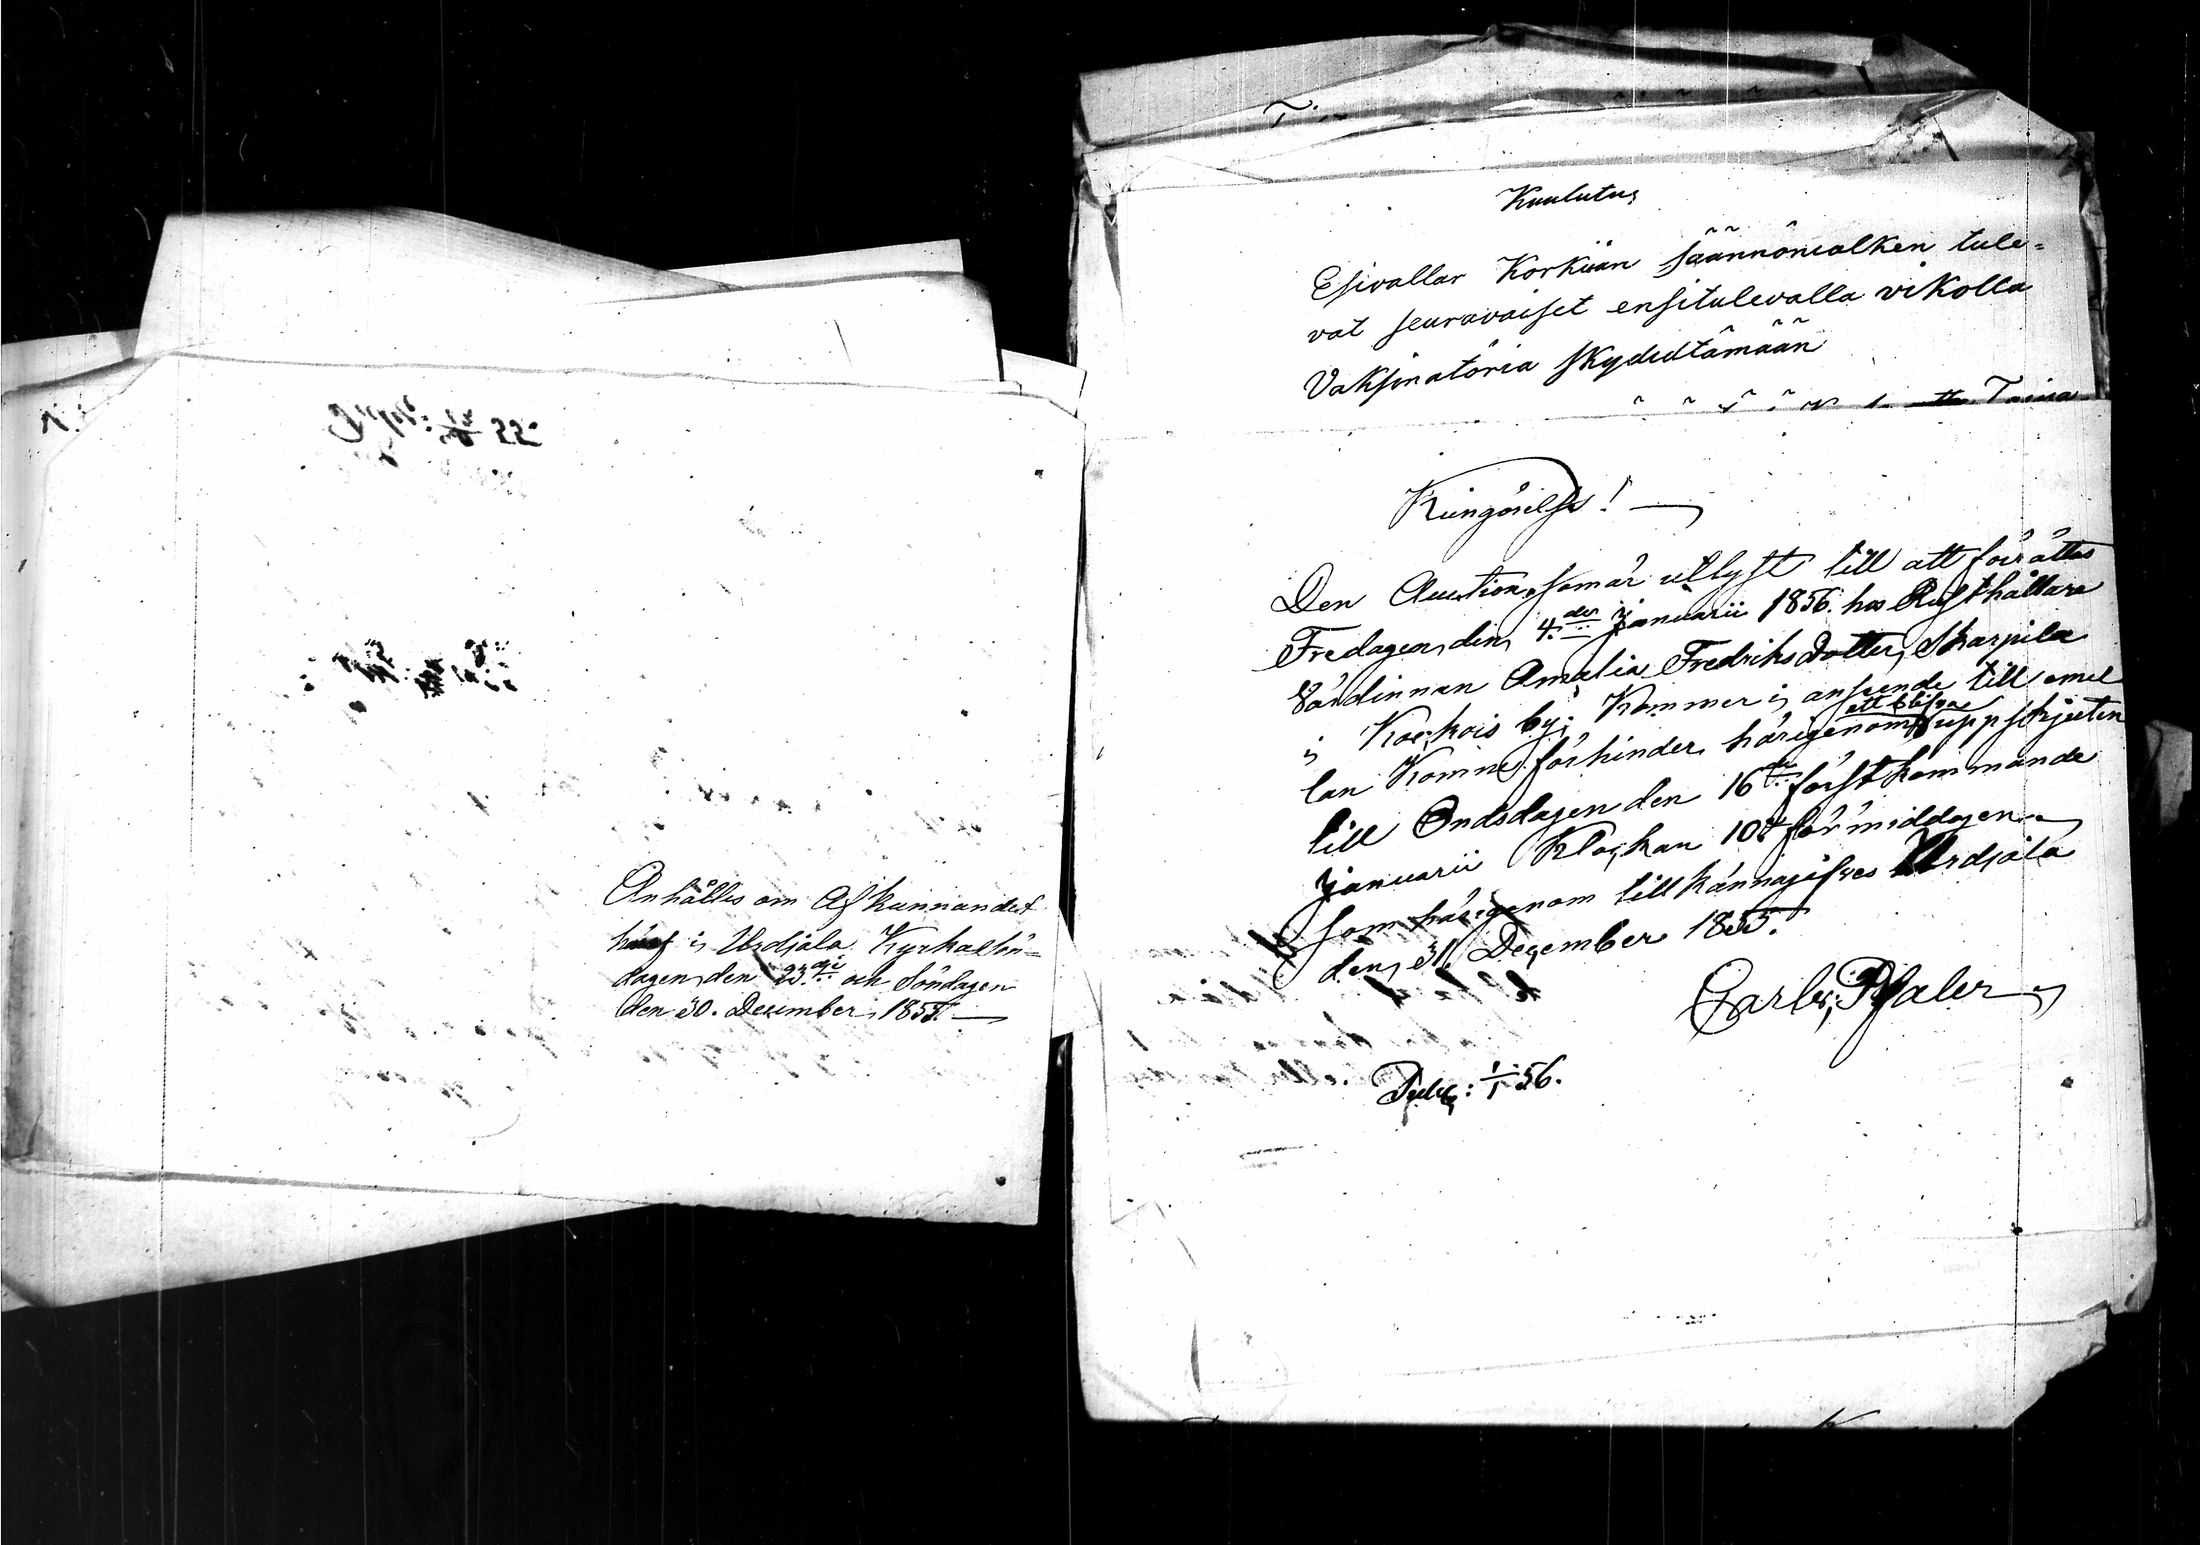 22.
Anhålles om Afkunnandet
häraf i Urdjala Kyrka Sön-
dagen den 23dje och Söndagen
den 30. December 1855.
Kuulutus
Esivallan Korkiian säännöncalken tule=
vat seuravaiset ensitulevalla vikolla
Vaksinatöria skydedtämään
Taina
Kungörelse!
Den Auction, som är utlyst till att förrättas
Fredagen den 4.de januarii 1856. hos Rusthållare
Värdinnan Amalia Fredriks dotter Skarpila
i Kockois by; Kommer i anseende till emel
lan Komne förhinder härigenom att blifva uppskjuten
till Ondsdagen den 16de först kommande
januarii Klockan 10 för middagen.
Som härigenom till kännagifves Urdjala
den 31 December 1855.
Carl Pfaler
Publ: 1/1 56.